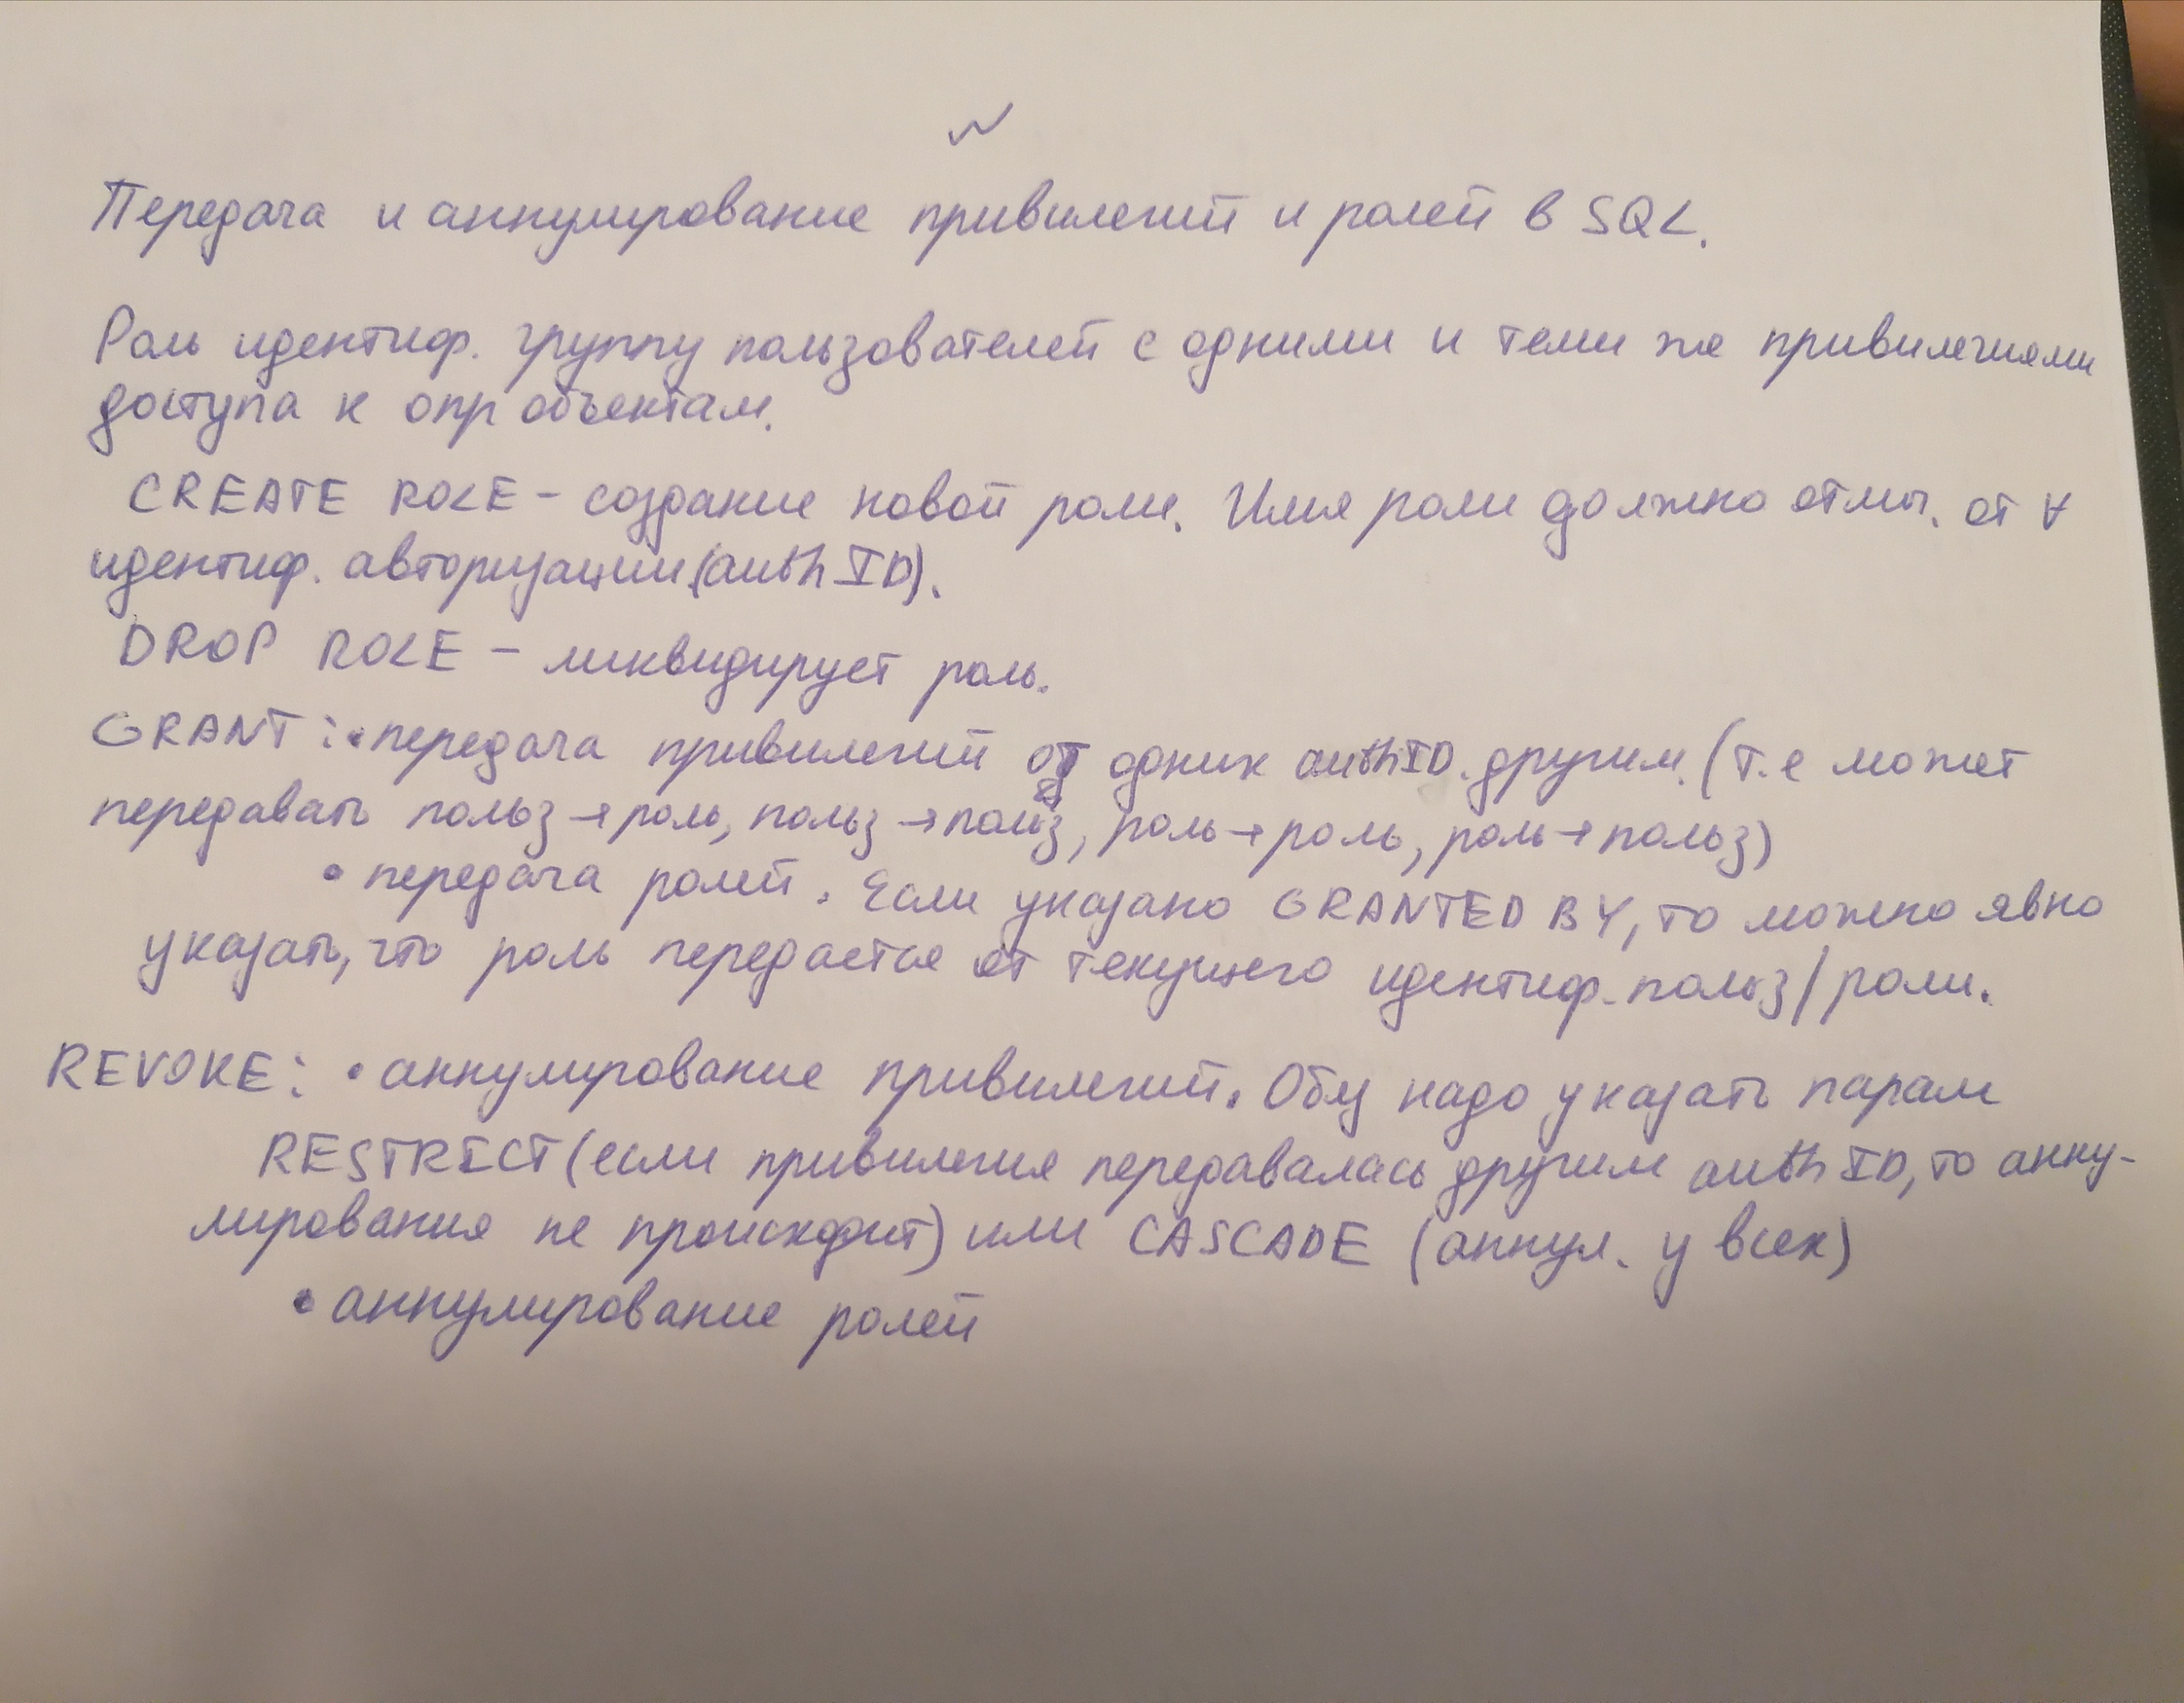 Передача и аннулирование привилегий и ролей в SQL.
Роль идентиф. группу пользователей с одними и теми же привилегиями
доступа к опр объектам.
CREATE ROLE - создание новой роли. Имя роли должно отлич. от ∀
идентиф. авторизации (auth ID).
DROP ROLE - ликвидирует роль.
GRANT: • передача привилегий от одних authID другим. (т.е может
передавать польз → роль, польз → польз, роль → роль, роль → польз)
• передача ролей. Если указано GRANTED BY, то можно явно
указать, что роль передается от текущего идентиф. польз/роли.
REVOKE: • аннулирование привилегий. Обяз надо указать парам
RESTRICT (если привилегия передавалась другим auth ID, то анну-
лирования не происходит) или CASCADE (аннул. у всех)
• аннулирование ролей